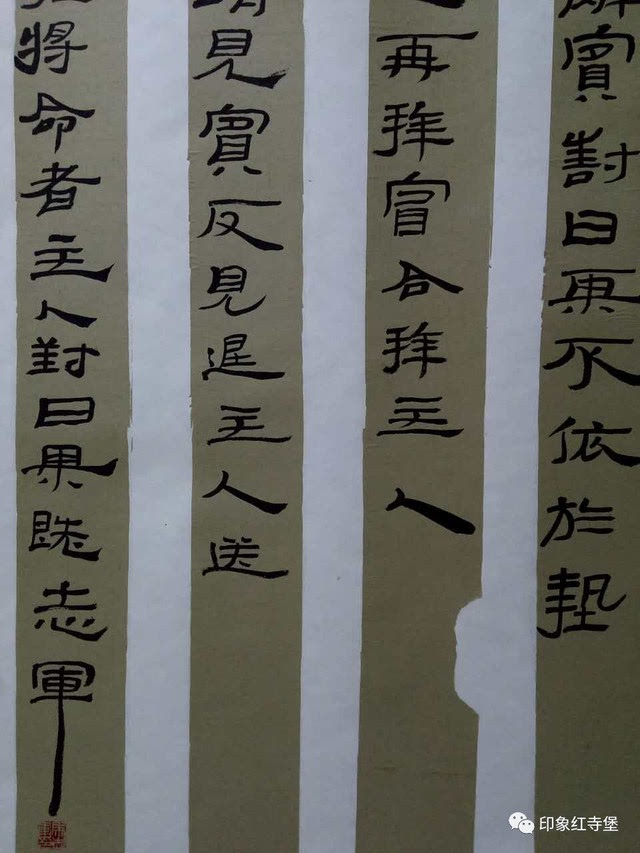 賓對曰某不依於摯
再拜賓合拜主人
請見賓反見退主人送
將命者主人對曰某既志軍
印象红寺堡